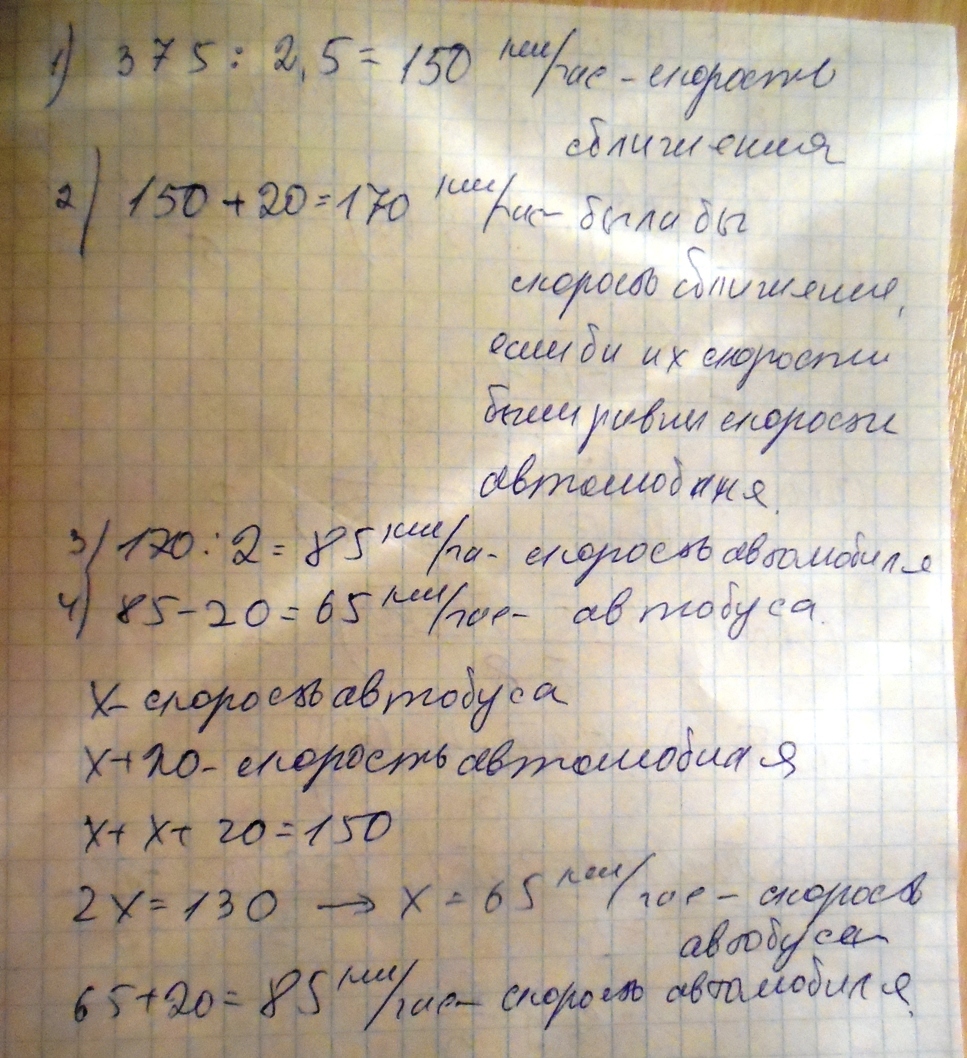 1) 375 : 2,5 = 150 км/час - скорость
сближения
2) 150 + 20 = 170 км/час - была бы
скорость сближения,
если бы их скорости
были равны скорости
автомобиля.
3) 170 : 2 = 85 км/ча - скорость автомобиля
4) 85 - 20 = 65 км/час - автобуса.
x - скорость автобуса
x + 20 - скорость автомобиля
x + x + 20 = 150
2x = 130 → x = 65 км/час - скорость
автобуса
65 + 20 = 85 км/час - скорость автомобиля.